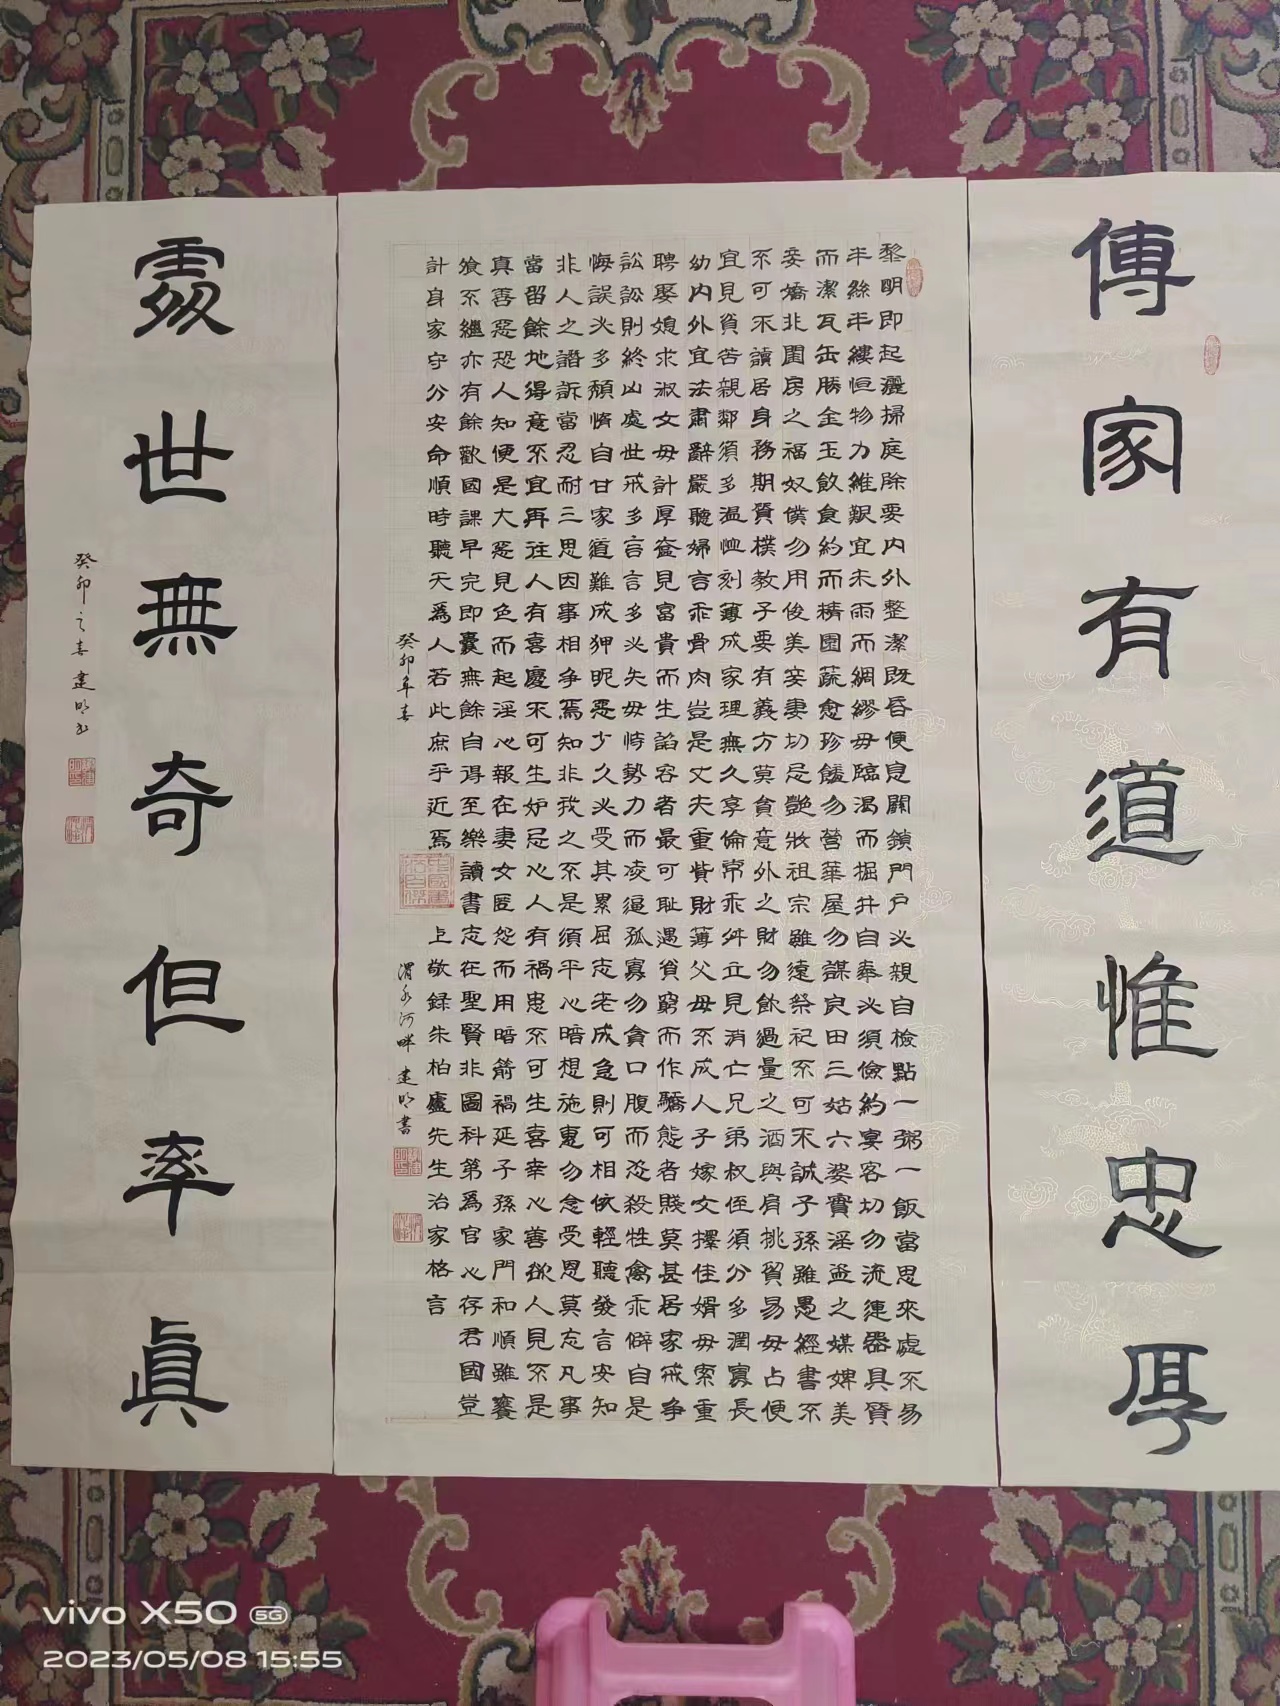 傳家有道惟忠厚
黎明即起灑掃庭除要內外整潔既昏便息關鎖門戶必親自檢點一粥一飯當思來處不易
半絲半縷恒物力維艱宜未雨而綢繆毋臨渴而掘井自奉必須儉約宴客切勿流連器具質
而潔瓦缶勝金玉飲食約而精園蔬愈珍饈勿營華屋勿謀良田三姑六婆實淫盜之媒婢美
妾嬌非閨房之福奴僕勿用俊美妾妻切忌艷妝祖宗雖遠祭祀不可不誠子孫雖愚經書不
不可不讀居身務期質樸教子要有義方莫貪意外之財勿飲過量之酒與肩挑貿易毋占便
宜見貧苦親鄰須多溫恤刻薄成家理無久享倫常乖舛立見消亡兄弟叔侄須分多潤寡長
幼內外宜法肅辭嚴聽婦言乖骨肉豈是丈夫重貲財薄父母不成人子嫁女擇佳婿毋索重
聘娶媳求淑女毋計厚奩見富貴而生諂容者最可恥遇貧窮而作驕態者賤莫甚居家戒爭
訟訟則終凶處世戒多言言多必失毋恃勢力而凌逼孤寡勿貪口腹而恣殺牲禽乖僻自是
悔誤必多頹惰自甘家道難成狎昵惡少久必受其累屈志老成急則可相依輕聽發言安知
非人之譖訴當忍耐三思因事相爭焉知非我之不是須平心暗想施惠勿念受恩莫忘凡事
當留餘地得意不宜再往人有喜慶不可生妒忌心人有禍患不可生喜幸心善欲人見不是
真善惡恐人知便是大惡見色而起淫心報在妻女匿怨而用暗箭禍延子孫家門和順雖饔
飧不繼亦有餘歡國課早完即囊無餘自得至樂讀書志在聖賢非圖科第為官心存君國豈
計身家守分安命順時聽天為人若此庶乎近焉 上敬錄朱柏廬先生治家格言
癸卯年春 渭水河畔 建明書
處世無奇但率真
癸卯之春建明書
vivo X50 5G
2023/05/08 15:55